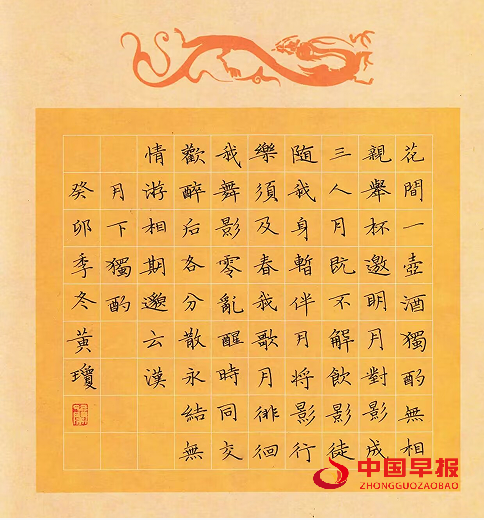 花間一壺酒獨酌無相
親舉杯邀明月對影成
三人月既不解飲影徒
隨我身暫伴月將影行
樂須及春我歌月徘徊
我舞影零亂醒時同交
歡醉后各分散永結無
情游相期邈云漢
月下獨酌
癸卯季冬黃瓊
中国早报
ZHONGGUOZAOBAO